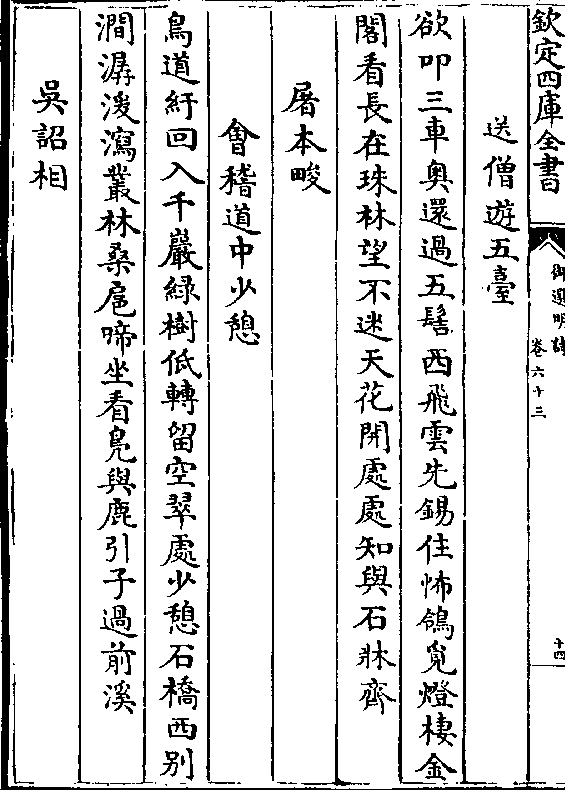 欽定四庫全書
御選明詩
卷六十三
十四
送僧遊五臺
欲叩三車奥還過五髻西飛雲先錫住怖鴿覓燈棲金
閣看長在珠林望不迷天花開處處知與石牀齊
屠本畯
會稽道中少憩
鳥道紆回入千巖綠樹低轉留空翠處少憩石橋西别
澗潺湲瀉叢林桑扈啼坐看鳬與鹿引子過前溪
吳詔相